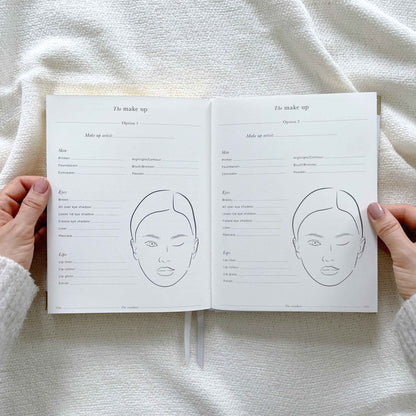 The make up
Option 1
Make up artist:
Skin
Primer
Highlight/Contour
Foundation
Blush/Bronzer
Concealer
Powder
Eyes
Brows
All over eye shadow
Lower lid eye shadow
Crease eye shadow
Liner
Mascara
Lips
Lip liner
Lip colour
Lip gloss
Finish
The make up
Option 2
Make up artist:
Skin
Primer
Highlight/Contour
Foundation
Blush/Bronzer
Concealer
Powder
Eyes
Brows
All over eye shadow
Lower lid eye shadow
Crease eye shadow
Liner
Mascara
Lips
Lip liner
Lip colour
Lip gloss
Finish